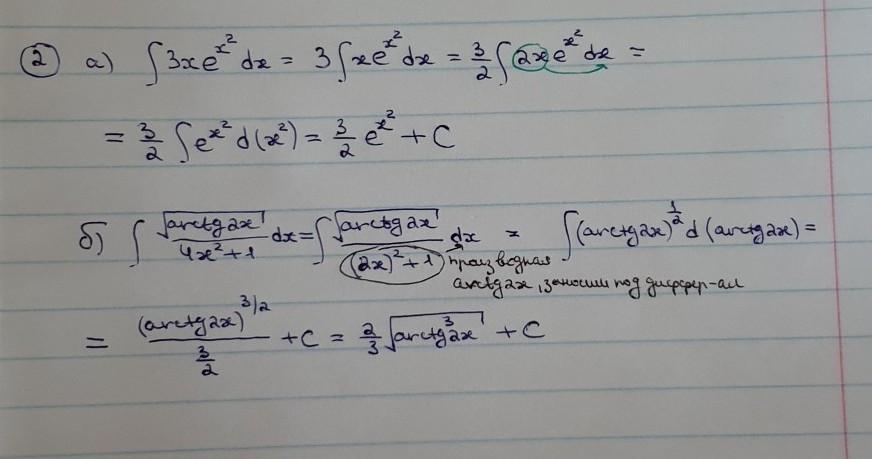 ② а) ∫3xe^{x²}dx = 3∫xe^{x²}dx = 3/2 ∫2xe^{x²}dx =
= 3/2 ∫e^{x²}d(x²) = 3/2 e^{x²} + C
б) ∫ √(arctg2x)/(4x²+1) dx = ∫ √(arctg2x)/((2x)²+1) dx = ∫(arctg2x)^{1/2} d(arctg2x) =
производная
arctg2x, заносим под диффер-ал
= (arctg2x)^{3/2}/(3/2) + C = 2/3 √(arctg³2x) + C